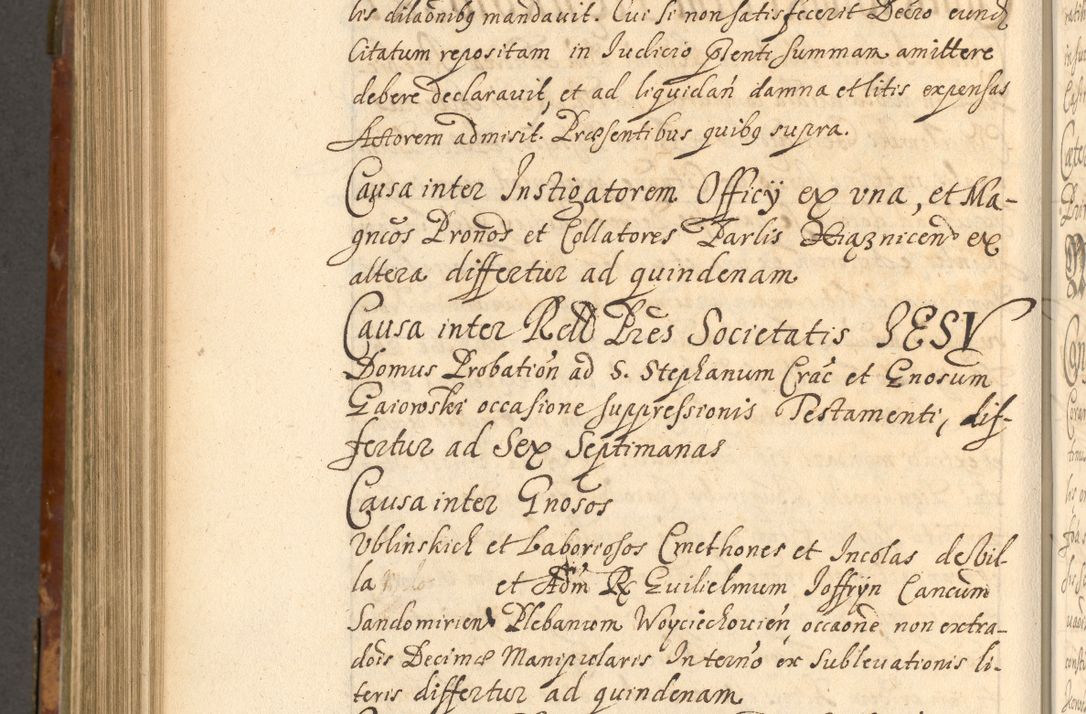 les dilaõnibq mandavit. Cui si non satisfecerit Decro eund
Citatum repositam in Iudicio pnti summam amittere
debere declaravit, et ad liquidañ damna et litis expensas
Actorem admisit. Præsentibus quibq supra.
Causa inter Instigatorem Officÿ ex vna, et Ma-
gncos Pronos et Collatores Parlis Xiąznicen ex
altera differtur ad quindenam
Causa inter Rell Pres Societatis IESV
Domus Probatioñ ad S. Stephanum Crac et Gnosum
Gaiowski occasione suppressionis Testamenti, dif-
fertur ad Sex Septimanas
Causa inter Gnosos
Vblinskich et Laboriosos Cmethones et Incolas de Vil-
la et Adm R Guilielmum Joffrÿn Cancum
Sandomirien Plebanum Woyciechouień, occaone non extra-
dois Decimæ Manipularis In terno ex Subleuationis li-
teris differtur ad quindenam